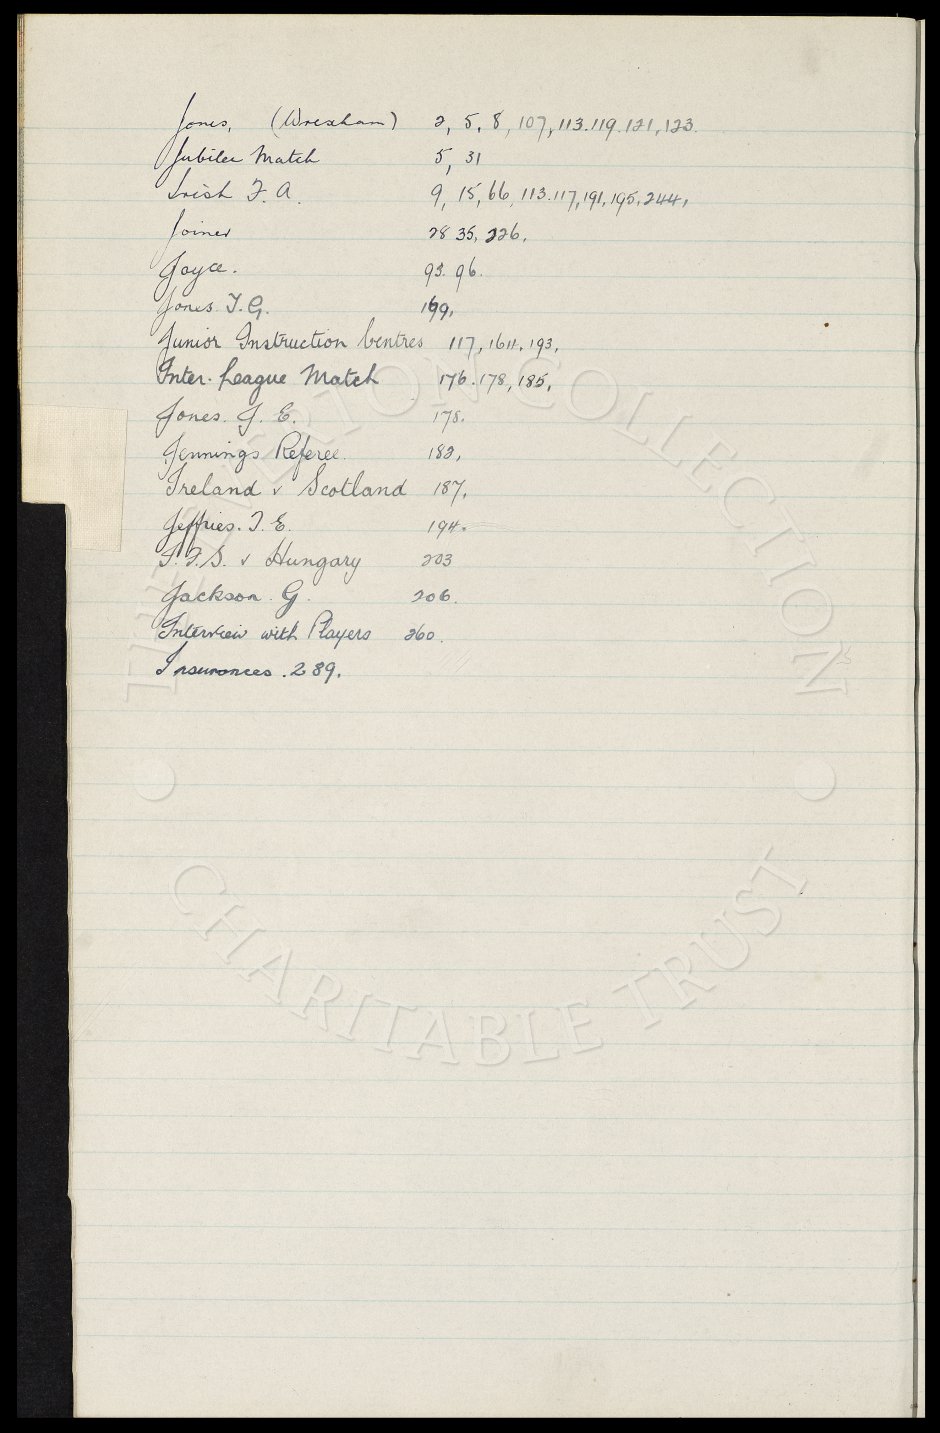 Jones, (Wrexham) 2, 5, 8, 107, 113. 119. 121, 123.
Jubilee Match 5, 31
Irish F. A. 9, 15, 66, 113. 117, 191, 195, 244,
Joiner 28 35, 226,
Joyce. 93. 96.
Jones T. G. 169,
Junior Instruction Centres 117, 164, 193,
Inter-League Match 176. 178, 185,
Jones. J. E. 178.
Jennings Referee. 182,
Ireland v Scotland 187,
Jeffries. J. E. 194.
I. F. S. v Hungary 203
Jackson. G. 206.
Interview with Players 260.
Insurances. 289.
THE EVERTON COLLECTION
CHARITABLE TRUST